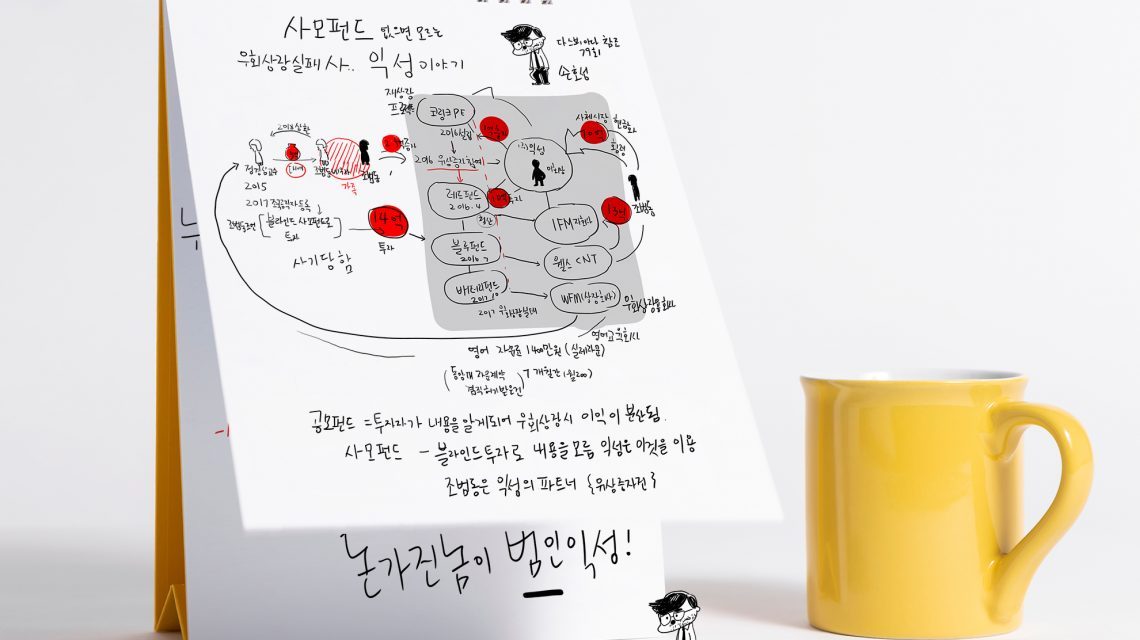 사모펀드 없으면 모르는
우회상장실패사.. 익성 이야기
다스뵈이다 참고
79회
손호성
재상장
프로젝트
코링크PE
2016 설립
사채시장
현금화
횡령
(주)익성
이회장
정경심교수
대여
가족
조범동
2015
2016 유상증자참여
레드펀드
2016. 4
청산
2017 고위공직자등록
[블라인드 사모펀드로
투자
14억
투자
사기당함
IFM
13억
조범동
블루펀드
2016. 7
웰스 CNT
배터리펀드
2017. 10
WFM(상장회사)
2017 우회상장발판
우회상장용회사
영어교육회사
영어 자문료 1400만원 (실제자문)
7개월간 (월200)
겸직허가받은건
공모펀드 = 투자자가 내용을 알게되어 우회상장시 이익이 분산됨.
사모펀드 - 블라인드투자로 내용을 모름 익성은 이것을 이용
조범동은 익성의 파트너 {위상증자전}
돈가진놈이 범인익성!